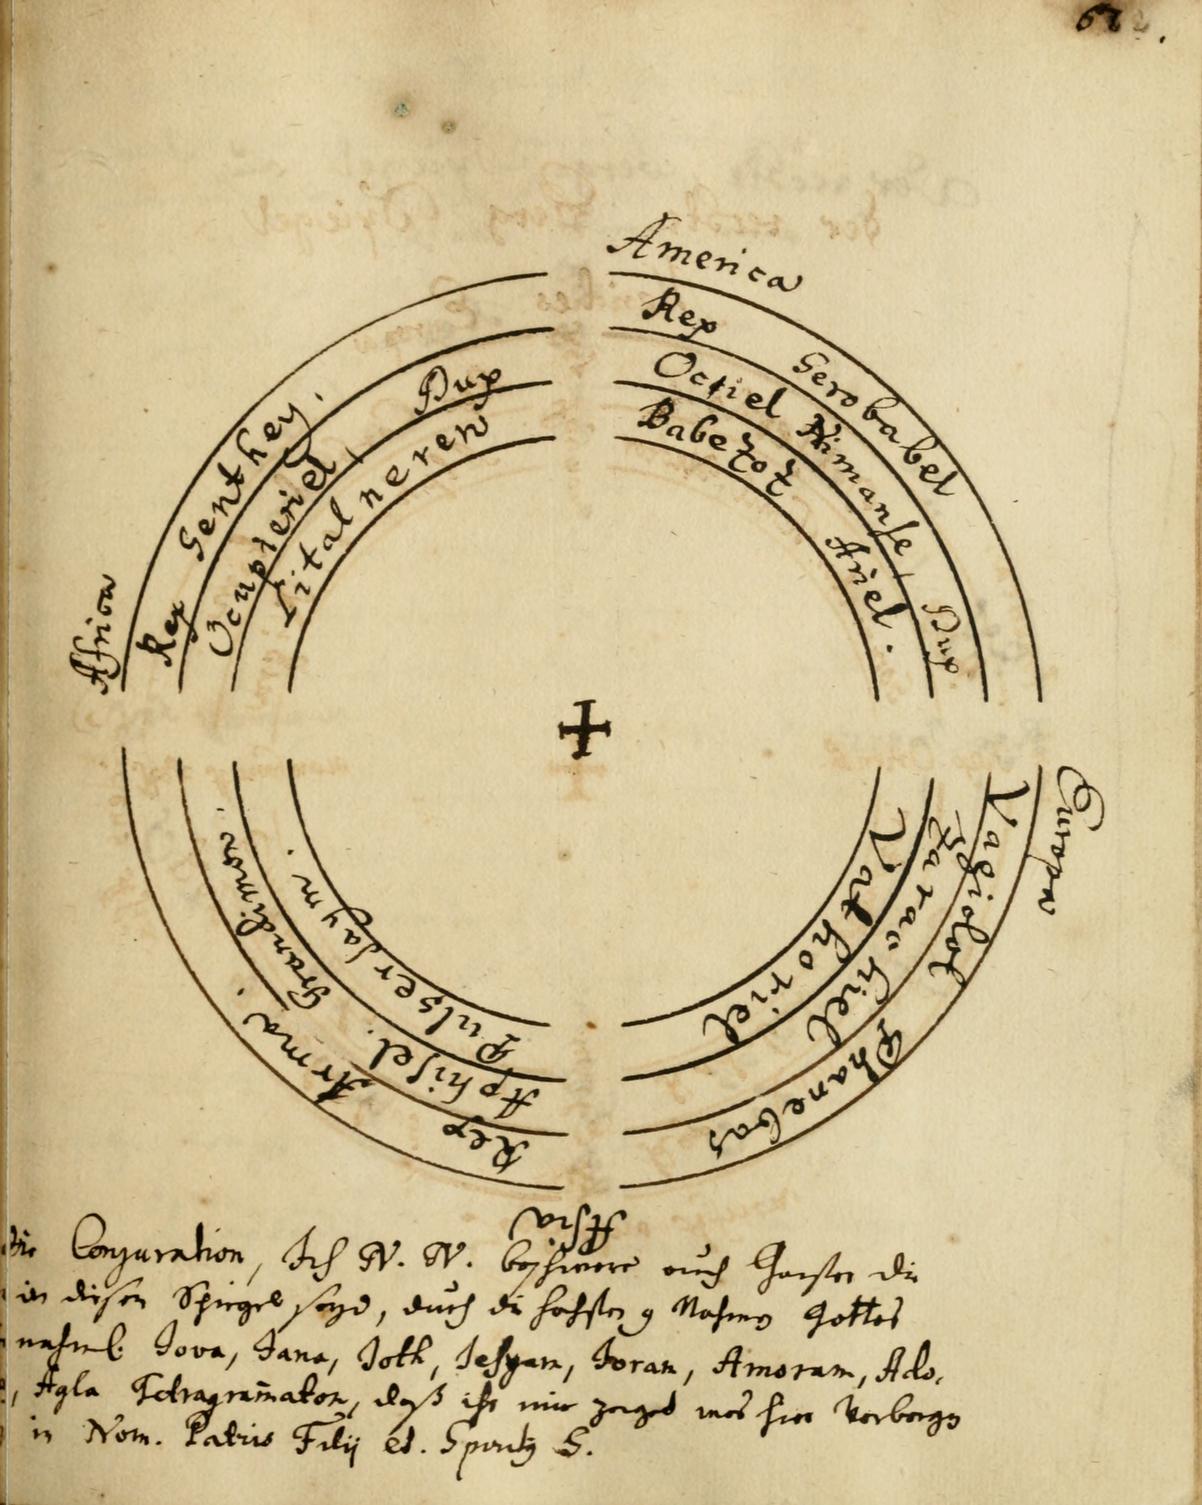 America
Rex Gerobabel
Octiel Himanse Dux
Babezot Ariel.
Africa
Rex Genthey.
Ocupteriel Dux
Litalneren
Europa
Vagidol Phanebas
Zarachiel
Vathoriel
Asia
Rex Arma. Grandimon.
Aphisel.
Pulserdaym.
die Conjuration, Ich N. N. beschwere euch Geister die
in diesen Spiegel seyd, durch die hochsten 9 Nahmen Gottes
nahml. Jova, Jana, Joth, Jehyam, Joram, Amoram, Ado,
Agla Tetragram̄aton, daß ihr mir zeiget was hier verborgen
in Nom. Patris Filij et. Spirity S.